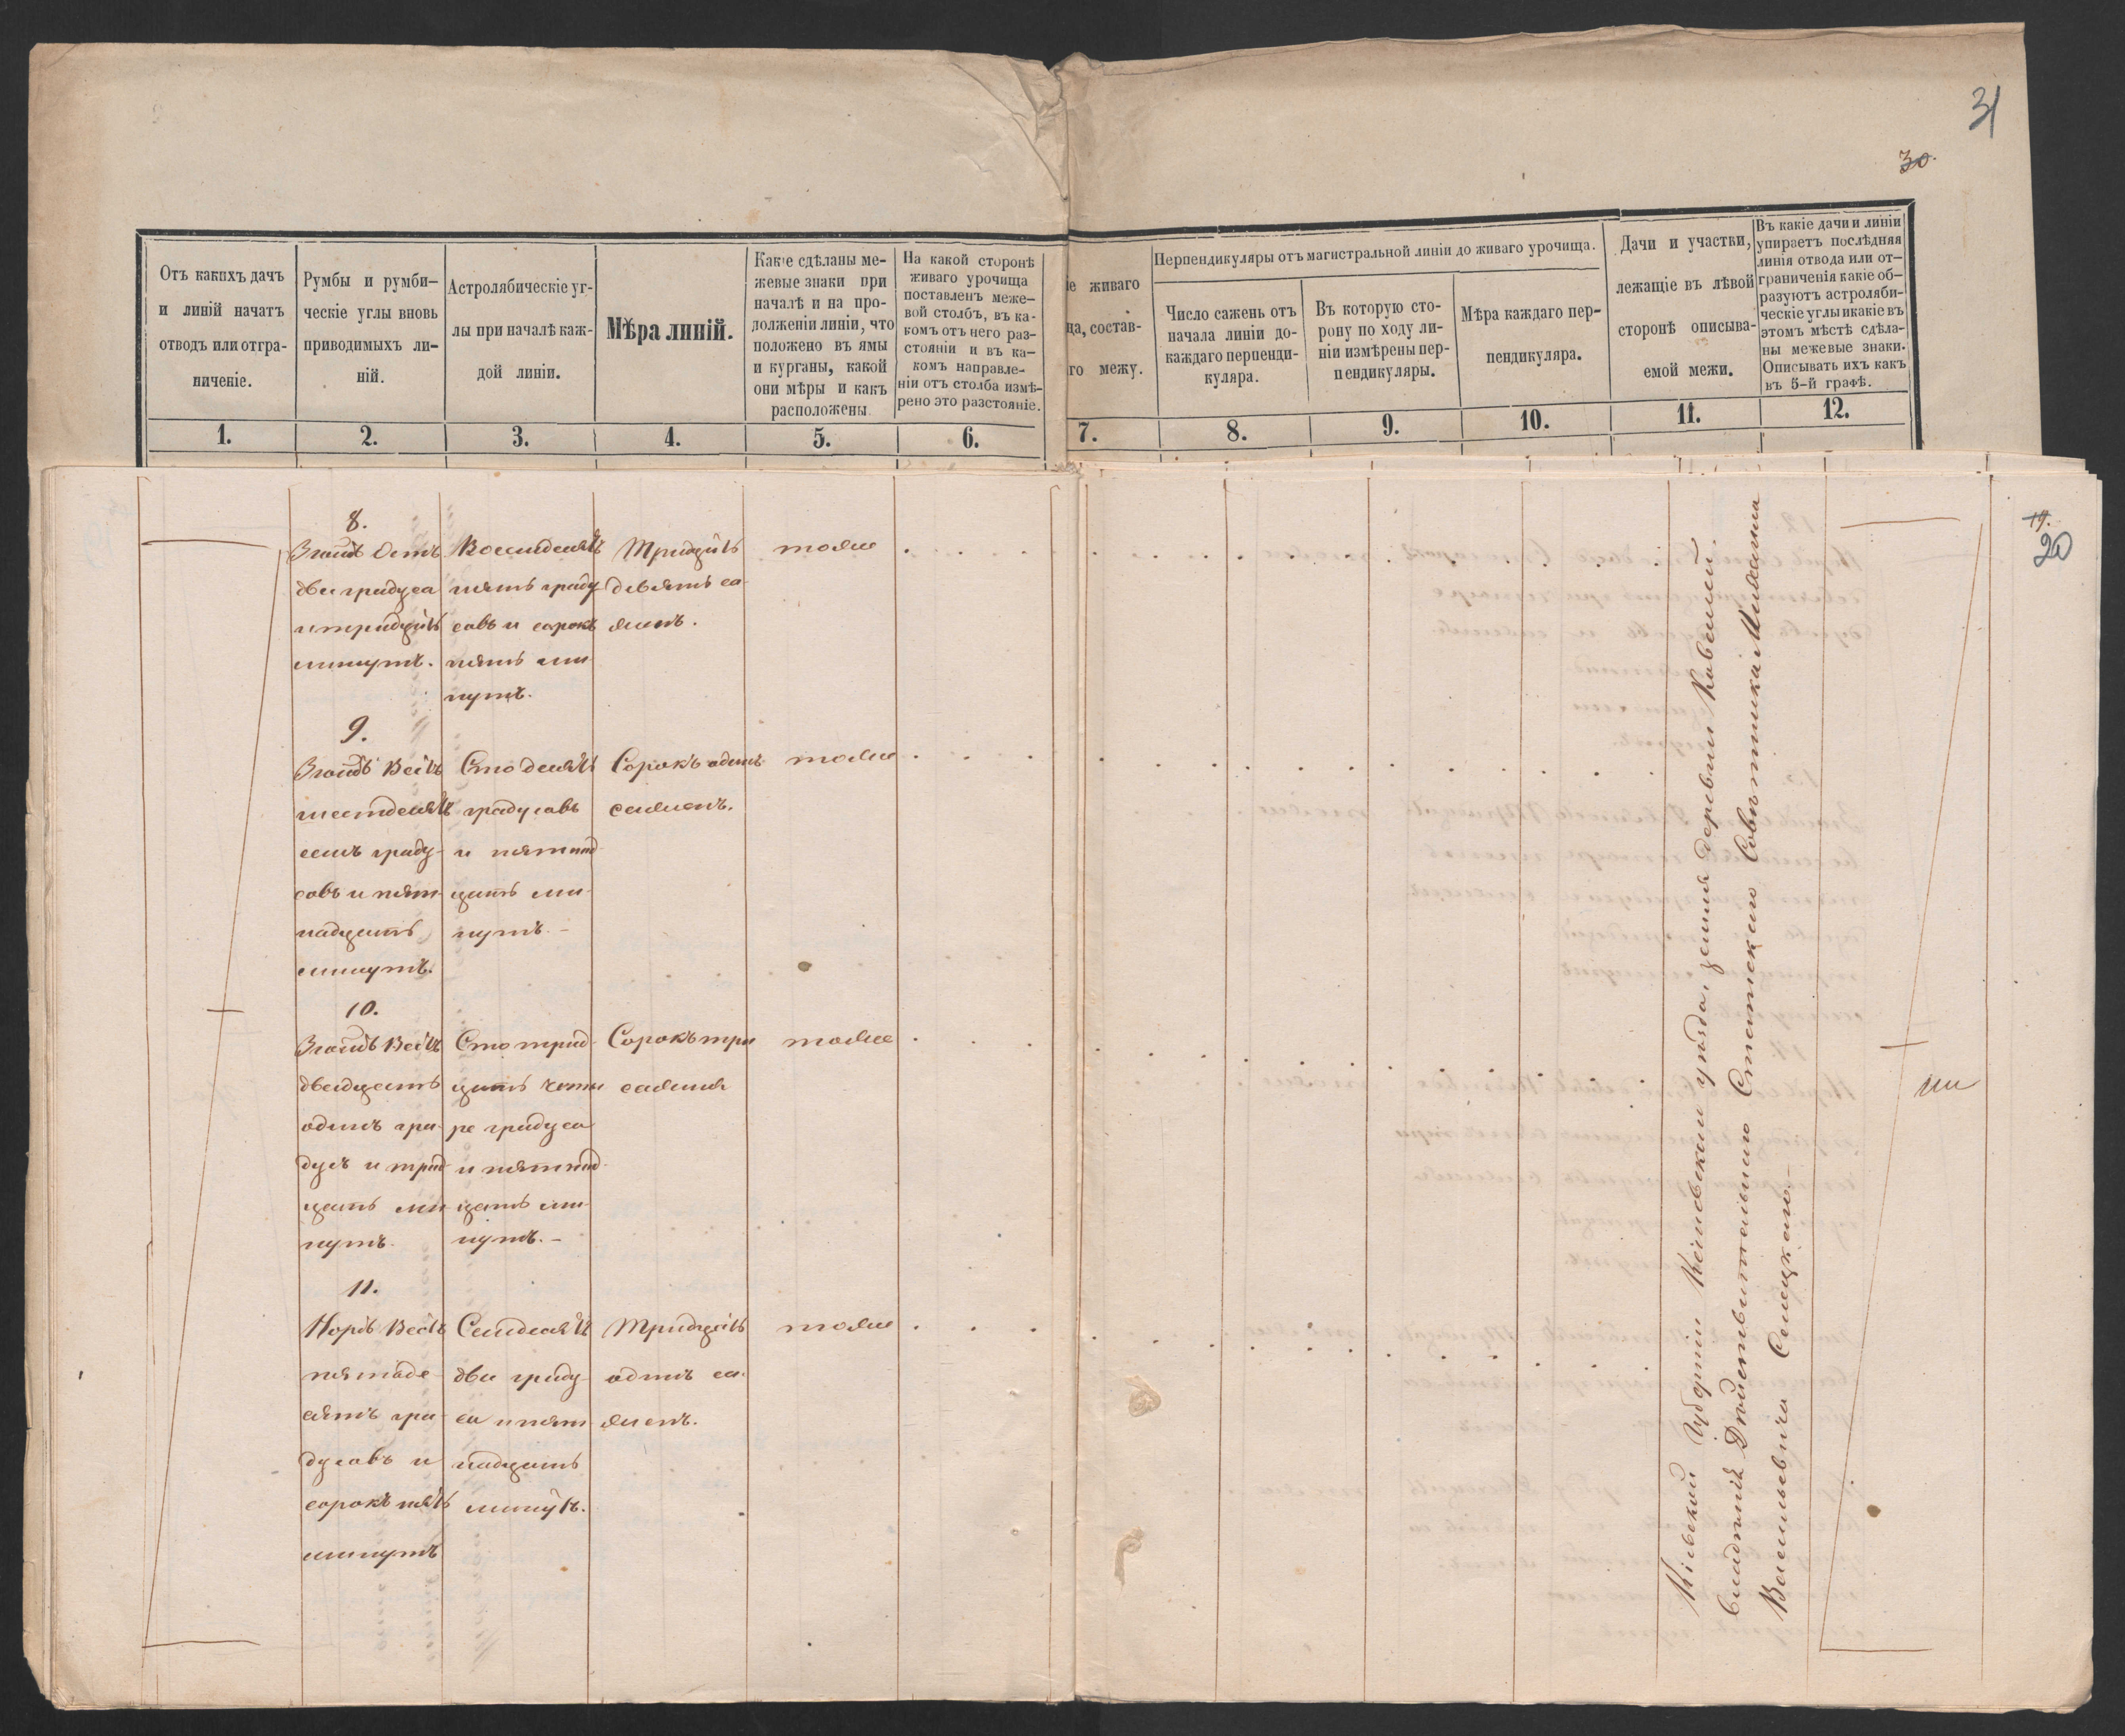 31
30.
Отъ какихъ дачъ
и линій начатъ
отводъ или отгра-
ниченіе.
Румбы и румби-
ческіе углы вновь
приводимыхъ ли-
ній.
Астролябическіе уг-
лы при началѣ каж-
дой линіи.
Мѣра линій.
Какіе сдѣланы ме-
жевые знаки при
началѣ и на про-
долженіи линіи, что
положено въ ямы
и курганы, какой
они мѣры и какъ
расположены.
На какой сторонѣ
живаго урочища
поставленъ меже-
вой столбъ, въ ка-
комъ отъ него раз-
стояніи и въ ка-
комъ направле-
ніи отъ столба измѣ-
рено это разстояніе.
іе живаго
ща, состав-
го межу.
Перпендикуляры отъ магистральной линіи до живаго урочища.
Число сажень отъ
начала линіи до
каждаго перпенди-
куляра.
Въ которую сто-
рону по ходу ли-
ніи измѣрены пер-
пендикуляры.
Мѣра каждаго пер-
пендикуляра.
Дачи и участки,
лежащіе въ лѣвой
сторонѣ описыва-
емой межи.
Въ какіе дачи и линіи
упираетъ послѣдняя
линія отвода или от-
граниченія какіе об-
разуютъ астроляби-
ческіе углы и какіе въ
этомъ мѣстѣ сдѣла-
ны межевые знаки.
Описывать ихъ какъ
въ 5-й графѣ.
1. 2. 3. 4. 5. 6. 7. 8. 9. 10. 11. 12.
19.
20
8.
Зюйдъ Остъ
два градуса
и тридцать
минутъ.
Восемдесятъ
пять граду
совъ и сорокъ
пять ми
нутъ.
Тридцать
девять са
женъ.
тоже
9.
Зюйдъ Вестъ
шестдесятъ
семъ граду-
совъ и пят-
надцать
минутъ.
Сто десять
градусовъ
и пятнад-
цать ми-
нутъ.
Сорокъ одинъ
саженъ.
тоже
10.
Зюйдъ Вестъ
двадцать
одинъ гра-
дусъ и трид-
цать ми-
нутъ.
Сто трид-
цать четы
ре градуса
и пятнад-
цать ми-
нутъ.
Сорокъ три
сажня
тоже
11.
Нордъ Вестъ
пятьде-
сятъ гра-
дусовъ и
сорокъ пять
минутъ
Семдесятъ
два граду-
са и пят-
надцать
минутъ.
Тридцать
одинъ са-
женъ.
тоже
Кіевской Губерніи Кіевскаго уѣзда, земля деревни
Дѣйствительного Статского Совѣтника Михаила
Васильевича